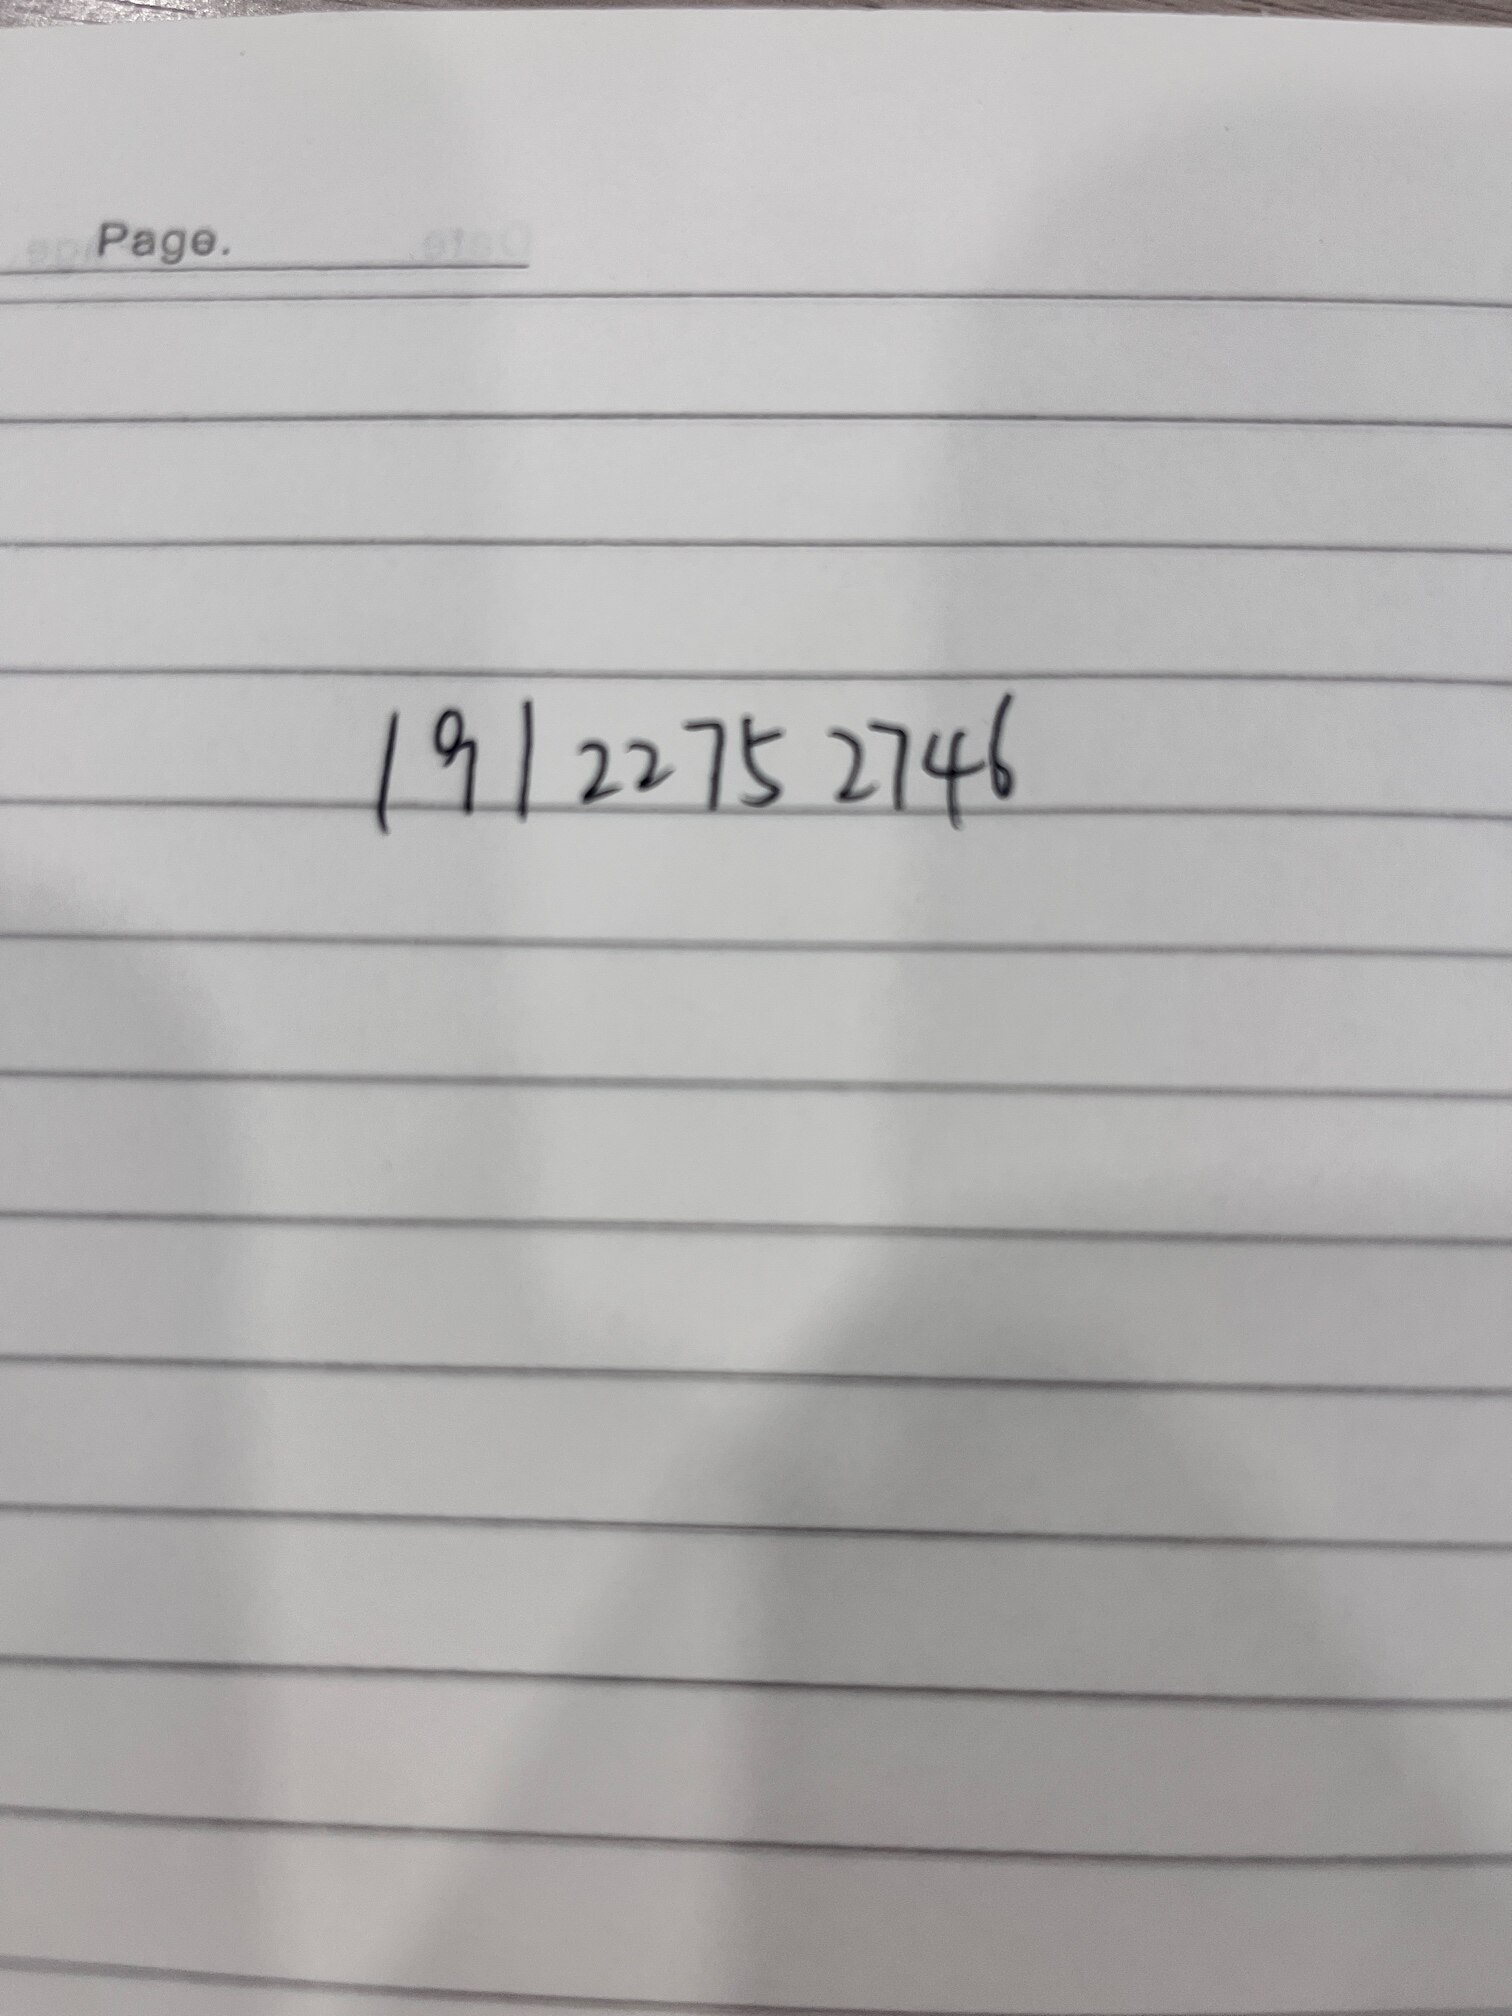 Page.
191 2275 2746